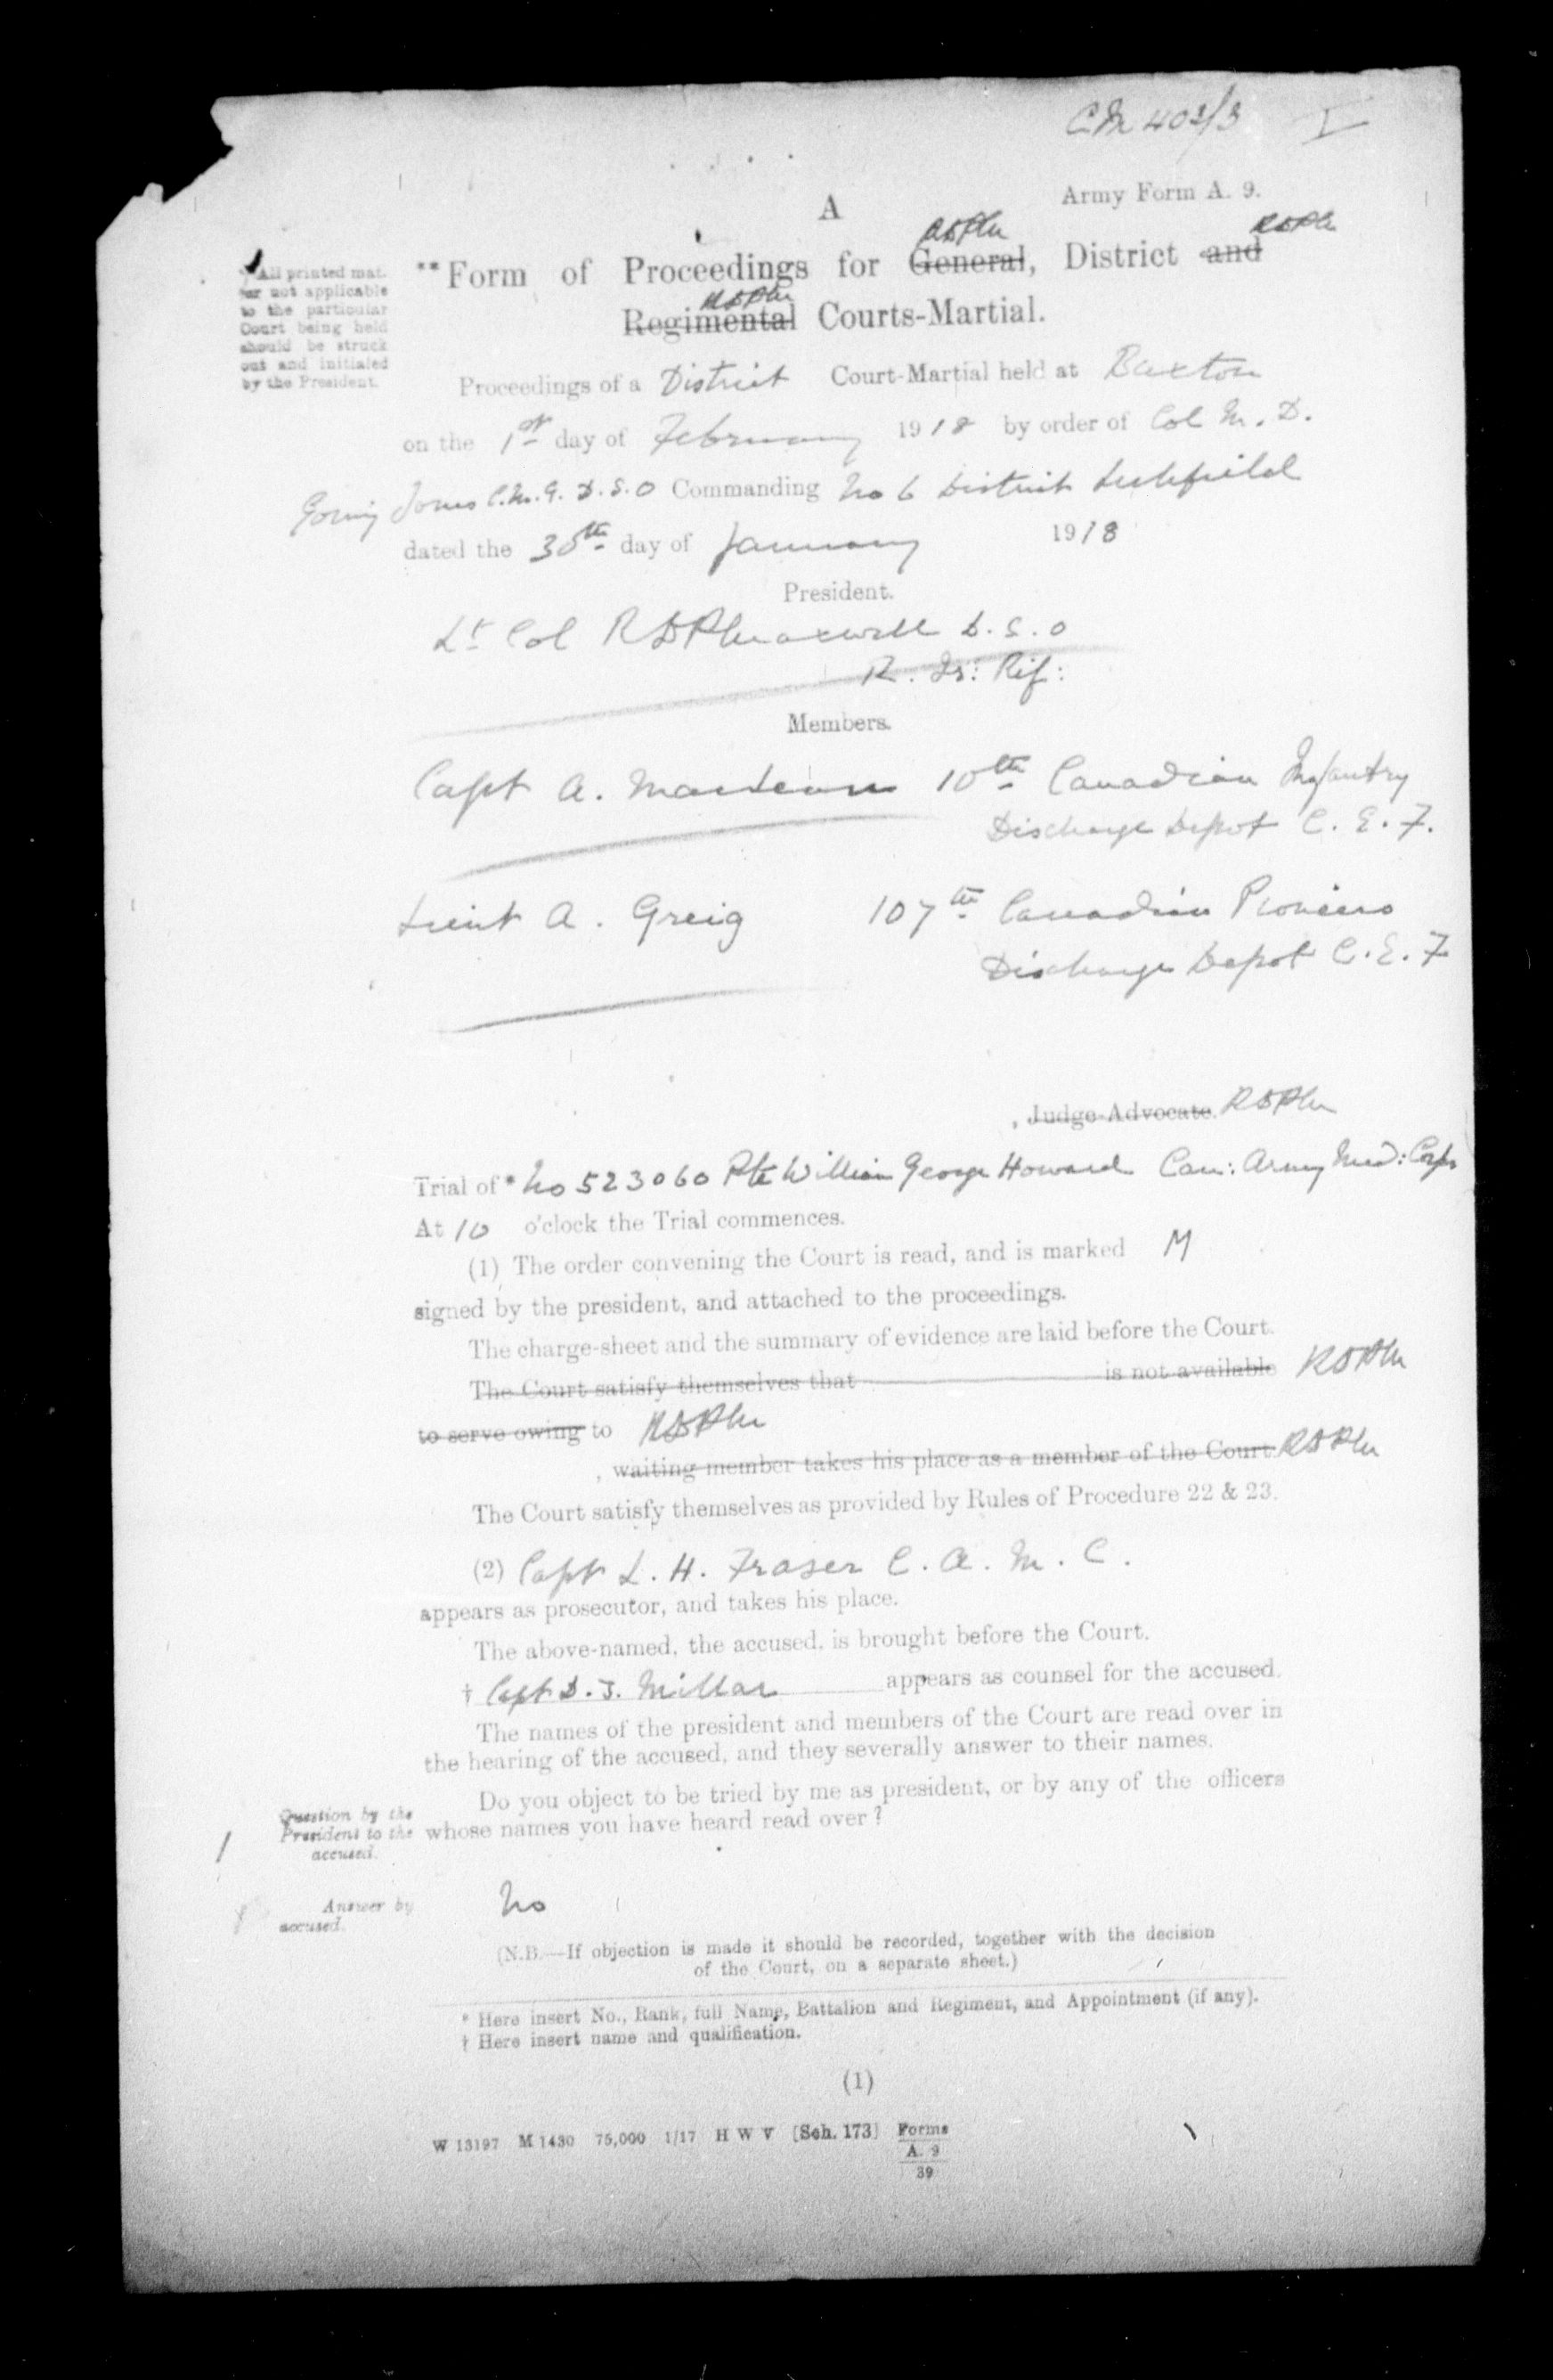 A
Army Form A. 9.
**Form of Proceedings for General, District and
Regimental Courts-Martial.
All printed mat-
ter not applicable
to the particular
Court being held
should be struck
out and initialed
by the President.
Proceedings of a District Court-Martial held at Buxton
on the 1st day of February 1918 by order of Col M. D.
Goring Jones C.M.G. D.S.O Commanding No 6 District Lichfield
dated the 30th day of January 1918
President.
Lt Col RDPMaxwell D.S.O
R. Ir: Rif:
Members.
Capt A. 10th Canadian Infantry
Discharge Depot C. E. F.
Lieut A. Greig 107th Canadian Pioneers
Discharge Depot C. E. F
Judge-Advocate. RDPM
Trial of * No 523060 Pte William George Howard Can: Army Med: Corps
At 10 o'clock the Trial commences.
(1) The order convening the Court is read, and is marked M
signed by the president, and attached to the proceedings.
The charge-sheet and the summary of evidence are laid before the Court.
The Court satisfy themselves that is not available RDPM
to serve owing to RDPM
, waiting member takes his place as a member of the Court. RDPM
The Court satisfy themselves as provided by Rules of Procedure 22 & 23.
(2) Capt L. H. Fraser C. A. M. C.
appears as prosecutor, and takes his place.
The above-named, the accused, is brought before the Court.
† Capt D. J. Millar appears as counsel for the accused.
The names of the president and members of the Court are read over in
the hearing of the accused, and they severally answer to their names.
Question by the
President to the
accused.
Do you object to be tried by me as president, or by any of the officers
whose names you have heard read over?
Answer by
accused.
No
(N.B.—If objection is made it should be recorded, together with the decision
of the Court, on a separate sheet.)
* Here insert No., Rank, full Name, Battalion and Regiment, and Appointment (if any).
† Here insert name and qualification.
(1)
W 13197 M 1430 75,000 1/17 H W V [Sch. 173] Forms
A. 9
39